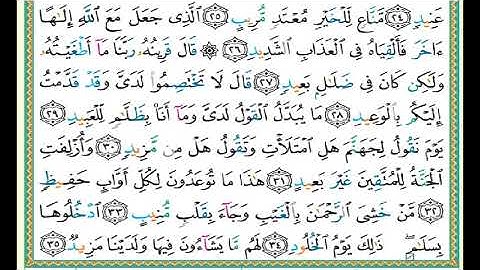 عَنِيدٍ ﴿٢٤﴾ مَّنَّاعٍ لِّلْخَيْرِ مُعْتَدٍ مُّرِيبٍ ﴿٢٥﴾ الَّذِى جَعَلَ مَعَ اللَّهِ إِلَـٰهًا
ءَاخَرَ فَأَلْقِيَاهُ فِى الْعَذَابِ الشَّدِيدِ ﴿٢٦﴾ ۞ قَالَ قَرِينُهُۥ رَبَّنَا مَآ أَطْغَيْتُهُۥ
وَلَـٰكِن كَانَ فِى ضَلَـٰلٍۭ بَعِيدٍ ﴿٢٧﴾ قَالَ لَا تَخْتَصِمُوا۟ لَدَىَّ وَقَدْ قَدَّمْتُ
إِلَيْكُم بِالْوَعِيدِ ﴿٢٨﴾ مَا يُبَدَّلُ الْقَوْلُ لَدَىَّ وَمَآ أَنَا۠ بِظَلَّـٰمٍ لِّلْعَبِيدِ ﴿٢٩﴾
يَوْمَ نَقُولُ لِجَهَنَّمَ هَلِ امْتَلَأْتِ وَتَقُولُ هَلْ مِن مَّزِيدٍ ﴿٣٠﴾ وَأُزْلِفَتِ
الْجَنَّةُ لِلْمُتَّقِينَ غَيْرَ بَعِيدٍ ﴿٣١﴾ هَـٰذَا مَا تُوعَدُونَ لِكُلِّ أَوَّابٍ حَفِيظٍ
﴿٣٢﴾ مَّنْ خَشِىَ الرَّحْمَـٰنَ بِالْغَيْبِ وَجَآءَ بِقَلْبٍ مُّنِيبٍ ﴿٣٣﴾ ادْخُلُوهَا
بِسَلَـٰمٍ ۖ ذَٰلِكَ يَوْمُ الْخُلُودِ ﴿٣٤﴾ لَهُم مَّا يَشَآءُونَ فِيهَا وَلَدَيْنَا مَزِيدٌ ﴿٣٥﴾